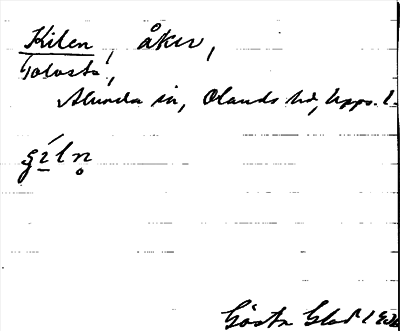 Kilen, åker,
Tolvsta,
Alunda sn, Olands hd, Upps. l.
gíln̥
Gösta Glad 193